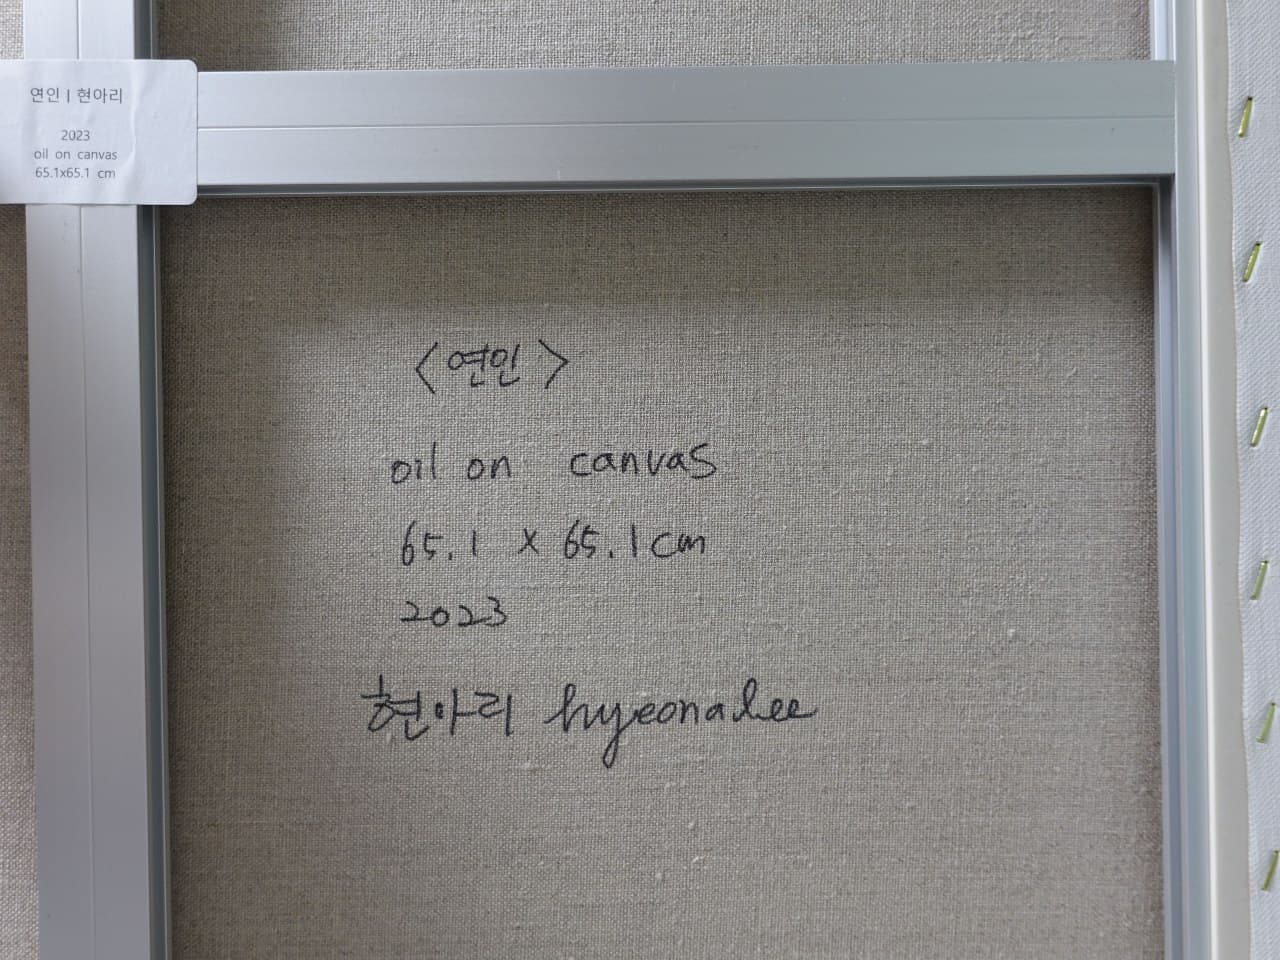 연인 | 현아리
2023
oil on canvas
65.1x65.1 cm
<연인>
oil on canvas
65.1 x 65.1cm
2023
현아리 hyeonalee